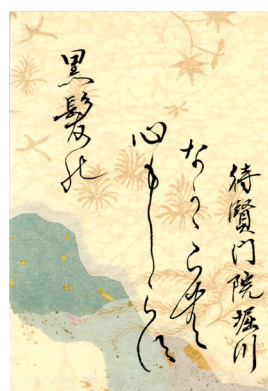 待賢門院堀川
なかゝらむ
心もしらす
黒髪の